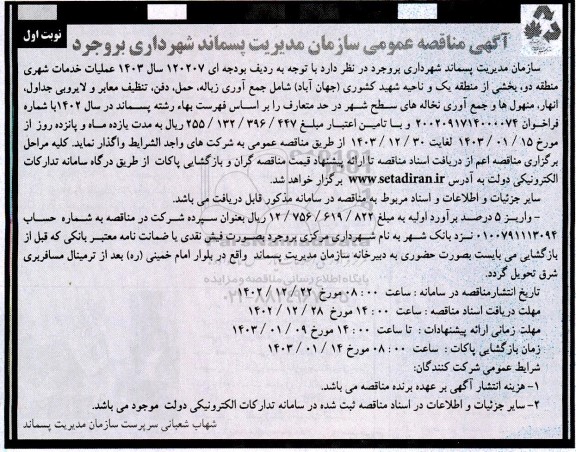 نوبت اول
آگهی مناقصه عمومی سازمان مدیریت پسماند شهرداری بروجرد
سازمان مدیریت پسماند شهرداری بروجرد در نظر دارد با توجه به ردیف بودجه ای ۱۲۰۲۰۷ سال ۱۴۰۳ عملیات خدمات شهری
منطقه دو، بخشی از منطقه یک و ناحیه شهید کشوری (جهان آباد) شامل جمع آوری زباله، حمل، دفن، تنظیف معابر و لایروبی جداول،
انهار، منهول ها و جمع آوری نخاله های سطح شهر در حد متعارف را بر اساس فهرست بهاء رشته پسماند در سال ۱۴۰۲ با شماره
فراخوان ۲۰۰۲۰۹۱۷۱۴۰۰۰۰۷۴ و با تامین اعتبار مبلغ ۴۴۷ / ۳۹۶ / ۱۳۲ / ۲۵۵ ریال به مدت یازده ماه و پانزده روز از
مورخ ۱۵ / ۰۱ / ۱۴۰۳ لغایت ۳۰ / ۱۲ / ۱۴۰۳ از طریق مناقصه عمومی به شرکت های واجد الشرایط واگذار نماید. کلیه مراحل
برگزاری مناقصه اعم از دریافت اسناد مناقصه تا ارائه پیشنهاد قیمت مناقصه گران و بازگشایی پاکات از طریق درگاه سامانه تدارکات
الکترونیکی دولت به آدرس www.setadiran.ir برگزار خواهد شد.
سایر جزئیات و اطلاعات و اسناد مربوط به مناقصه در سامانه مذکور قابل دریافت می باشد.
- واریز ۵ درصد برآورد اولیه به مبلغ ۸۲۲ / ۶۱۹ / ۷۵۶ / ۱۲ ریال بعنوان سپرده شرکت در مناقصه به شماره حساب
۰۱۰۰۷۹۱۱۱۳۰۹۴ نزد بانک شهر به نام شهرداری مرکزی بروجرد بصورت فیش نقدی یا ضمانت نامه معتبر بانکی که قبل از
بازگشایی می بایست بصورت حضوری به دبیرخانه سازمان مدیریت پسماند واقع در بلوار امام خمینی (ره) بعد از ترمینال مسافربری
شرق تحویل گردد.
تاریخ انتشار مناقصه در سامانه : ساعت ۰۰ : ۰۸ مورخ ۲۲ / ۱۲ / ۱۴۰۲
مهلت دریافت اسناد مناقصه : ساعت ۰۰ : ۱۴ مورخ ۲۸ / ۱۲ / ۱۴۰۲
مهلت زمانی ارائه پیشنهادات : تا ساعت ۰۰ : ۱۴ مورخ ۰۹ / ۰۱ / ۱۴۰۳
زمان بازگشایی پاکات : ساعت ۰۰ : ۰۸ مورخ ۱۴ / ۰۱ / ۱۴۰۳
شرایط عمومی شرکت کنندگان:
۱- هزینه انتشار آگهی بر عهده برنده مناقصه می باشد.
۲- سایر جزئیات و اطلاعات در اسناد مناقصه ثبت شده در سامانه تدارکات الکترونیکی دولت موجود می باشد.
شهاب شعبانی سرپرست سازمان مدیریت پسماند